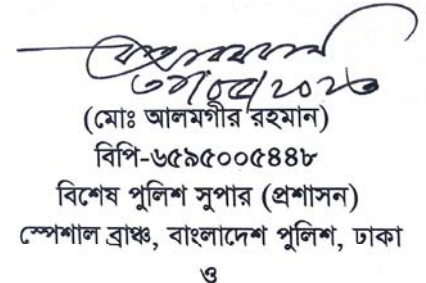 (মোঃ আলমগীর রহমান)
বিপি-৬৫৯৫০০৫৪৪৮
বিশেষ পুলিশ সুপার (প্রশাসন)
স্পেশাল ব্রাঞ্চ, বাংলাদেশ পুলিশ, ঢাকা
ও